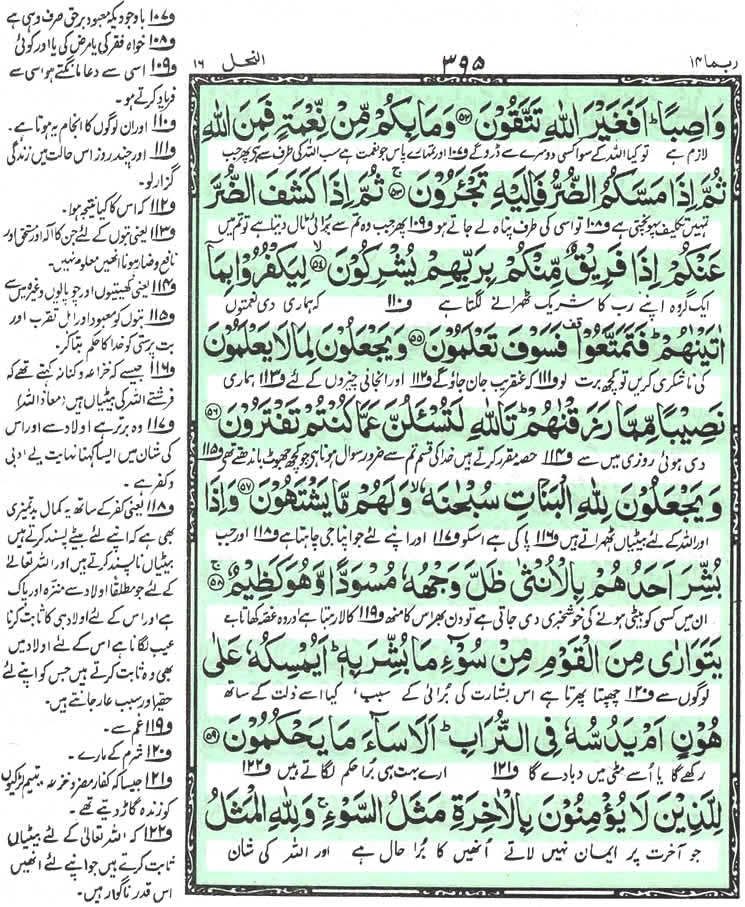 ربما ۱۴
۳۹۵
النحل ۱۶
وَاصِبًا ؕ اَفَغَيْرَ اللّٰهِ تَتَّقُوْنَ ۝۵۲ وَمَا بِكُمْ مِّنْ نِّعْمَةٍ فَمِنَ اللّٰهِ
لازم ہے تو کیا اللہ کے سوا کسی دوسرے سے ڈرو گے و۱۰۷ اور تمہارے پاس جو نعمت ہے سب اللہ کی طرف سے ہے پھر جب
ثُمَّ اِذَا مَسَّكُمُ الضُّرُّ فَاِلَيْهِ تَجْــَٔرُوْنَ ۝۵۳ ثُمَّ اِذَا كَشَفَ الضُّرَّ
تمہیں تکلیف پہونچتی ہے و۱۰۸ تو اسی کی طرف پناہ لے جاتے ہو و۱۰۹ پھر جب وہ تم سے برائی ٹال دیتا ہے تو تم میں
عَنْكُمْ اِذَا فَرِيْقٌ مِّنْكُمْ بِرَبِّهِمْ يُشْرِكُوْنَ ۝۵۴ لِيَكْفُرُوْا بِمَاۤ
ایک گروہ اپنے رب کا شریک ٹھہرانے لگتا ہے و۱۱۰ کہ ہماری دی نعمتوں
اٰتَيْنٰهُمْ ؕ فَتَمَتَّعُوْا قف فَسَوْفَ تَعْلَمُوْنَ ۝۵۵ وَيَجْعَلُوْنَ لِمَا لَا يَعْلَمُوْنَ
کی ناشکری کریں تو کچھ برت لو و۱۱۱ کہ عنقریب جان جاؤ گے و۱۱۲ اور انجانی چیزوں کے لئے و۱۱۳ ہماری
نَصِيْبًا مِّمَّا رَزَقْنٰهُمْ ؕ تَاللّٰهِ لَتُسْـَٔلُنَّ عَمَّا كُنْتُمْ تَفْتَرُوْنَ ۝۵۶
دی ہوئی روزی میں سے و۱۱۴ حصہ مقرر کرتے ہیں خدا کی قسم تم سے ضرور سوال ہونا ہے جو کچھ جھوٹ باندھتے تھے و۱۱۵
وَيَجْعَلُوْنَ لِلّٰهِ الْبَنَاتِ سُبْحٰنَهٗ ۙ وَلَهُمْ مَّا يَشْتَهُوْنَ ۝۵۷ وَاِذَا
اور اللہ کے لئے بیٹیاں ٹھہراتے ہیں و۱۱۶ پاکی ہے اسکو و۱۱۷ اور اپنے لئے جو اپنا جی چاہتا ہے و۱۱۸ اور جب
بُشِّرَ اَحَدُهُمْ بِالْاُنْثٰى ظَلَّ وَجْهُهٗ مُسْوَدًّا وَّهُوَ كَظِيْمٌ ۝۵۸
ان میں کسی کو بیٹی ہونے کی خوشخبری دی جاتی ہے تو دن بھر اس کا منھ و۱۱۹ کالا رہتا ہے اور وہ غصہ کھاتا ہے
يَتَوَارٰى مِنَ الْقَوْمِ مِنْ سُوْٓءِ مَا بُشِّرَ بِهٖ ؕ اَيُمْسِكُهٗ عَلٰى
لوگوں سے و۱۲۰ چھپتا پھرتا ہے اس بشارت کی برائی کے سبب، کیا اسے ذلت کے ساتھ
هُوْنٍ اَمْ يَدُسُّهٗ فِى التُّرَابِ ؕ اَلَا سَآءَ مَا يَحْكُمُوْنَ ۝۵۹
رکھے گا یا اسے مٹی میں دبا دے گا و۱۲۱ ارے بہت ہی برا حکم لگاتے ہیں و۱۲۲
لِلَّذِيْنَ لَا يُؤْمِنُوْنَ بِالْاٰخِرَةِ مَثَلُ السَّوْءِ ۚ وَلِلّٰهِ الْمَثَلُ
جو آخرت پر ایمان نہیں لاتے انھیں کا برا حال ہے اور اللہ کی شان
و۱۰۷ باوجودیکہ معبود برحق صرف وہی ہے
و۱۰۸ خواہ فقر کی یا مرض کی یا اور کوئی
و۱۰۹ اسی سے دعا مانگتے ہو اسی سے
فریاد کرتے ہو۔
و۱۱۰ اور ان لوگوں کا انجام یہ ہوتا ہے۔
و۱۱۱ اور چند روز اس حالت میں زندگی
گزار لو۔
و۱۱۲ کہ اس کا کیا نتیجہ ہوا۔
و۱۱۳ یعنی بتوں کے لئے جن کا الٰہ اور مستحق اور
نافع و ضار ہونا انھیں معلوم نہیں۔
و۱۱۴ یعنی کھیتیوں اور چوپایوں وغیرہ میں سے
و۱۱۵ بتوں کو معبود اور اہل تقرب اور
بت پرستی کو خدا کا حکم بتا کر۔
و۱۱۶ جیسے کہ خزاعہ و کنانہ کہتے تھے کہ
فرشتے اللہ کی بیٹیاں ہیں (معاذ اللہ)
و۱۱۷ وہ برتر ہے اولاد سے اور اس
کی شان میں ایسا کہنا نہایت بے ادبی
و کفر ہے۔
و۱۱۸ یعنی کفر کے ساتھ یہ کمال بدتمیزی
بھی ہے کہ اپنے لئے بیٹے پسند کرتے ہیں
بیٹیاں ناپسند کرتے ہیں اور اللہ تعالیٰ
کے لئے جو مطلقًا اولاد سے منزہ اور پاک
ہے اور اس کے لئے اولاد ہی کا ثابت کرنا
عیب لگانا ہے اس کے لئے اولاد میں
بھی وہ ثابت کرتے ہیں جس کو اپنے لئے
حقیر اور سبب عار جانتے ہیں۔
و۱۱۹ غم سے۔
و۱۲۰ شرم کے مارے۔
و۱۲۱ جیسا کہ کفار مضر و خزاعہ و تمیم لڑکیوں
کو زندہ گاڑ دیتے تھے۔
و۱۲۲ کہ اللہ تعالیٰ کے لئے بیٹیاں
ثابت کرتے ہیں جو اپنے لئے انھیں
اس قدر ناگوار ہیں۔